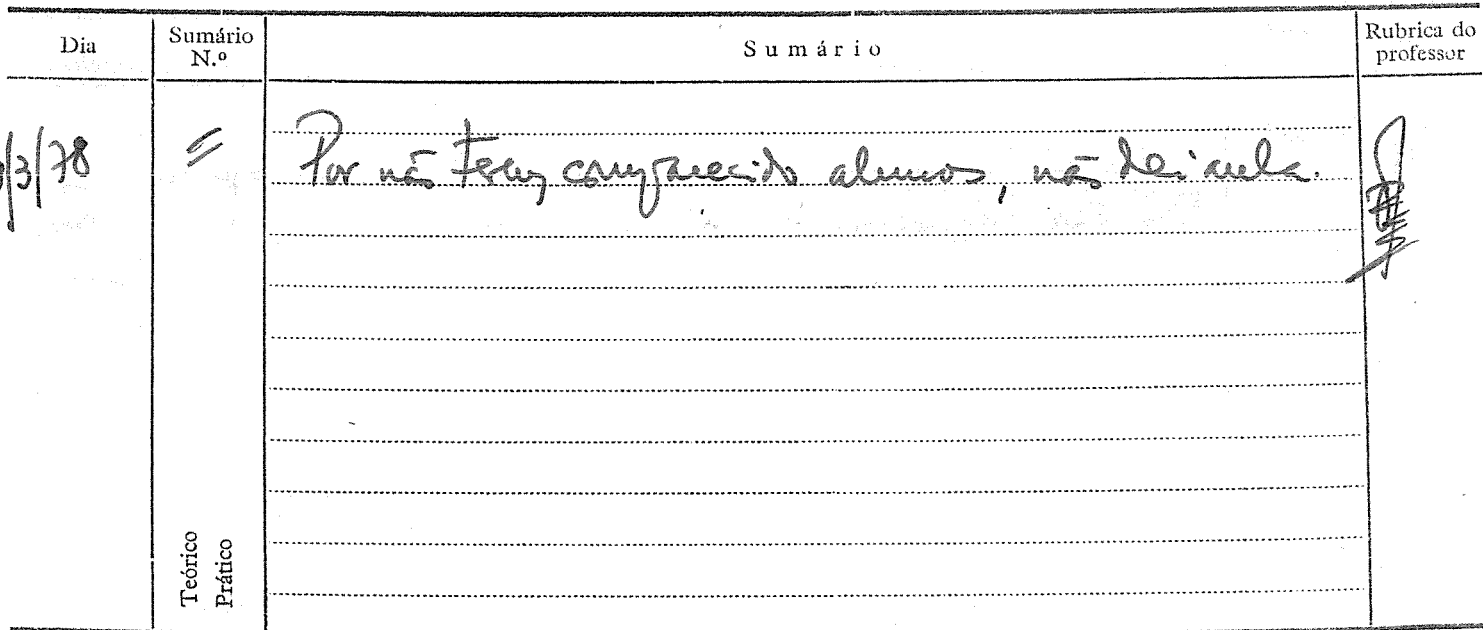 Dia
Sumário N.º
Sumário
Rubrica do professor
/3/78
Por não terem comparecido alunos, não dei aula.
Teórico
Prático